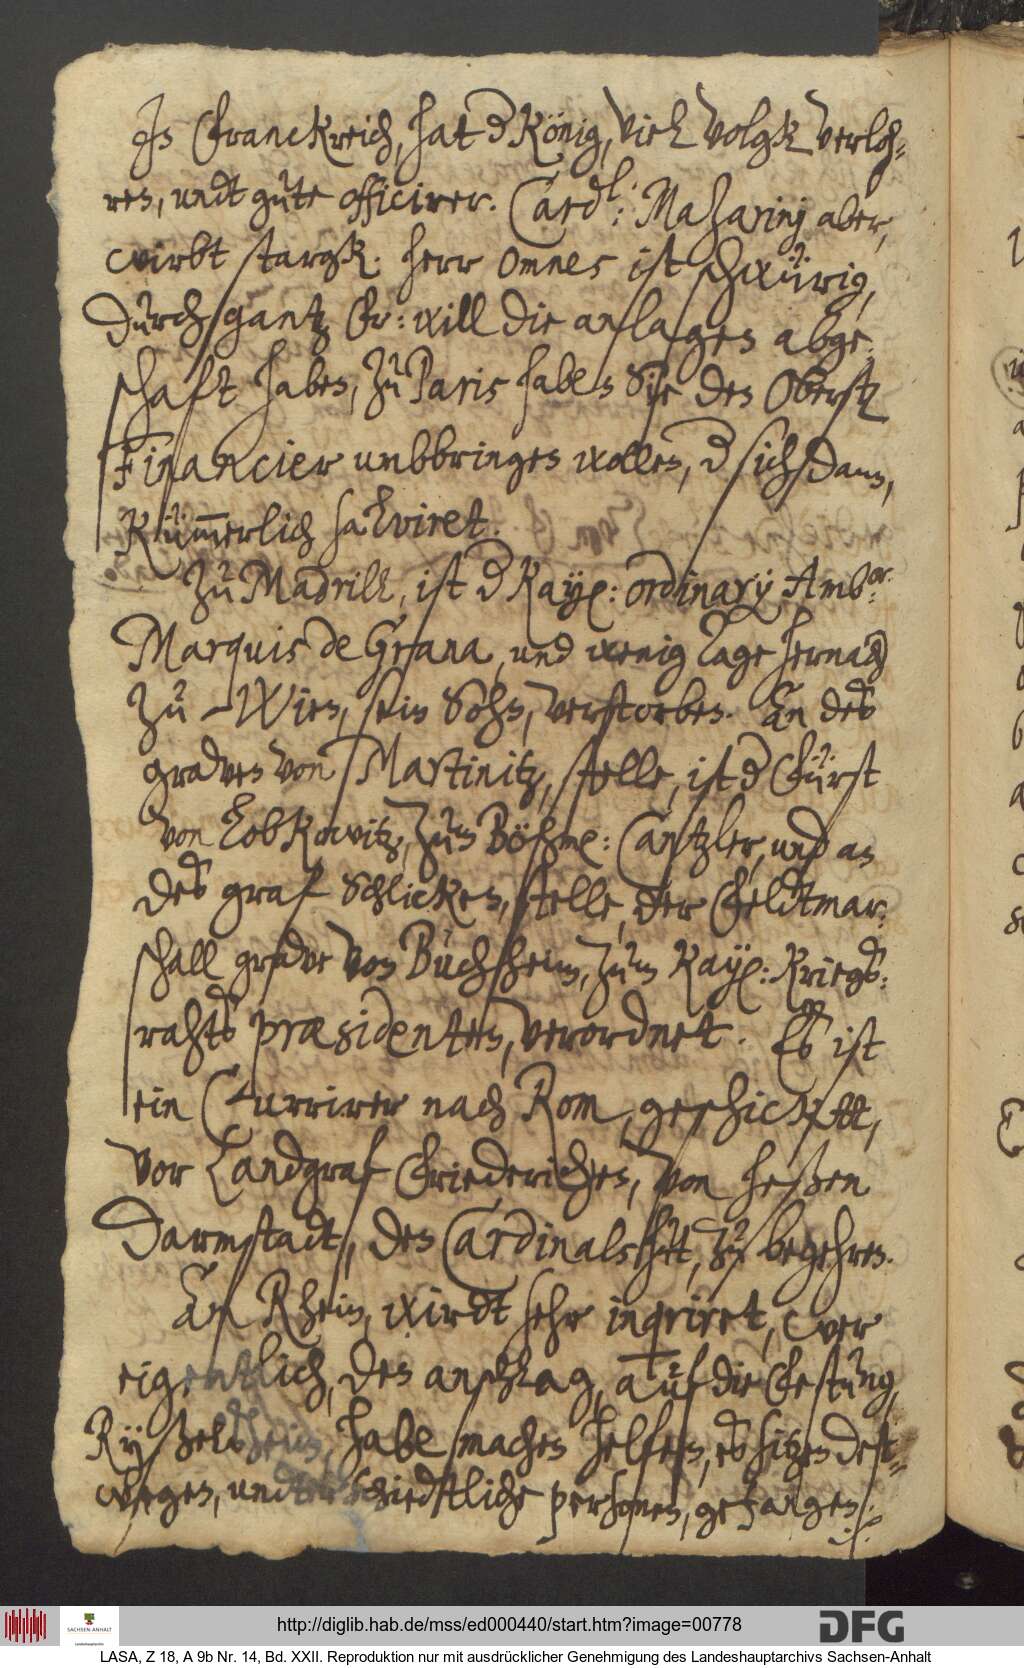 In Franckreich, hat d König, viel volgk verloh=
ren, undt gute officirer. Card.l: Mazarinj aber,
wirbt stargk. Herr Omnes ist schwürig,
durch gantz Fr: will die anlagen abge¬
schaft haben, zu Paris haben Sie den Obersten
Financier umbbringen wollen, d sich dann,
kümmerlich salviret.
Zu Madrill, ist d Kay: ordinary Amb.or
Marquis de Grana, und wenig Tage hernach
zu Wien, sein Sohn, verstorben. An des
graven von Martinitz, stelle, ist d Fürst
von Lobkowitz, zum Böhm: Cantzler, und an
des graf Schlicken, stelle, der Feldtmar¬
schall grave von Buchheim, zum Kay: Kriegs:
rahts præsidenten, verordnet. Es ist
ein Currirer nach Rom, geschickt,
vor Landgraf Friederichen, von Heßen
Darmstadt, den Cardinalshut, zu begehren.
Am Rhein, wirdt sehr inqriret, wer
eigentlich, den anschlag, auf die Festung,
Rüßelsheim, habe machen helfen, es sitzen dest=
wegen, undterschiedtliche personen, gefangen.
http://diglib.hab.de/mss/ed000440/start.htm?image=00778
DFG
SACHSEN-ANHALT
LASA, Z 18, A 9b Nr. 14, Bd. XXII. Reproduktion nur mit ausdrücklicher Genehmigung des Landeshauptarchivs Sachsen-Anhalt